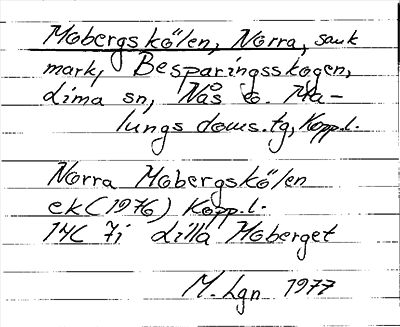 Mobergskölen, Norra, sank
mark, Besparingsskogen,
Lima sn, Nås o. Ma-
lungs doms.tg, Kopp.l.
Norra Mobergskölen
ek (1976) Kopp.l.
14C 7i Lilla Moberget
M. Lgn 1977